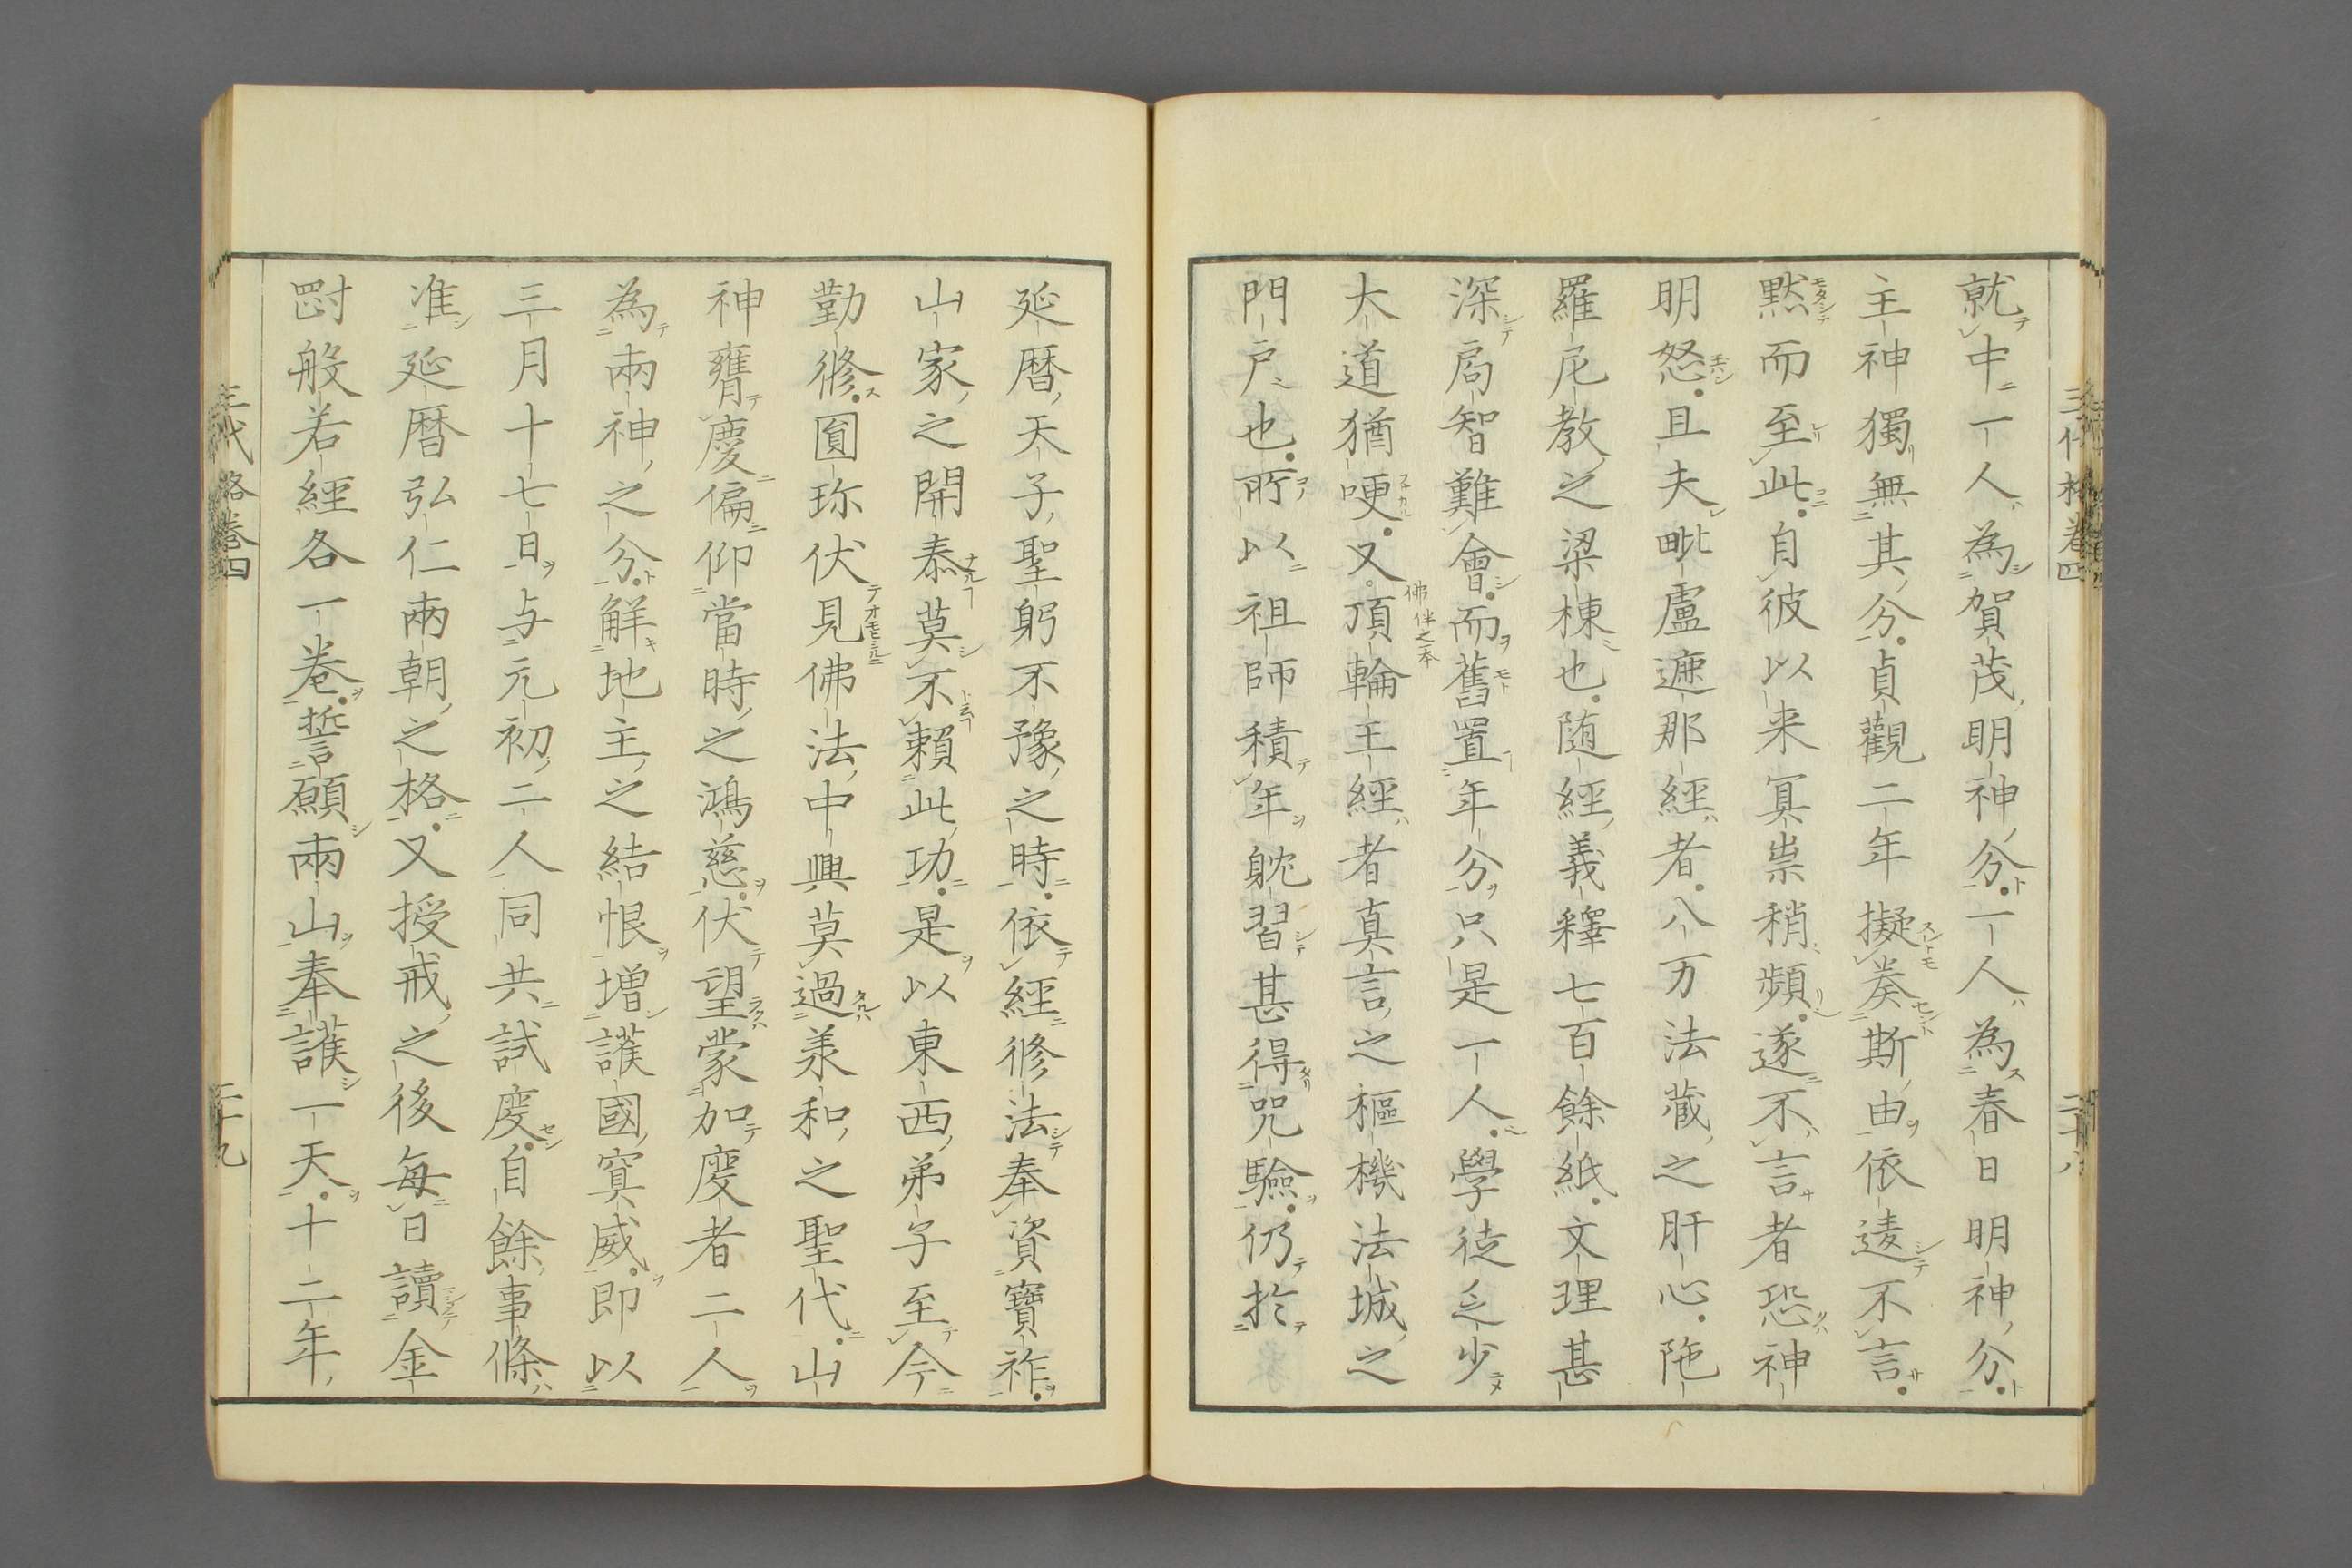 就中一人為賀茂明神分一人為春日明神分
主神獨無其分貞觀二年擬奏斯由依遠不言
黙而至此自彼以来冥祟稍頻遂不言者恐神
明怒且夫毗盧遮那經者八万法蔵之肝心陁
羅尼教之梁棟也随經義釋七百餘紙文理甚
深局智難會而舊置年分只是一人學徒乏少
大道猶哽又頂輪王經者真言之樞機法城之
門戸也所以祖師積年躭習甚得咒驗仍於
延暦天子聖躬不豫之時依經修法奉資寶祚
山家之開泰莫不頼此功是以東西弟子至今
勤修圓珎伏見佛法中興莫過羕和之聖代山
神胥慶偏仰當時之鴻慈伏望蒙加度者二人
為兩神之分解地主之結恨増護國冥威即以
三月十七日与元初二人同共試度自餘事條
准延暦弘仁兩朝之格又授戒之後毎日讀金
罸般若經各一巻誓願兩山奉護一天十二年
三代格巻四
二十八
三代格巻四
二十九